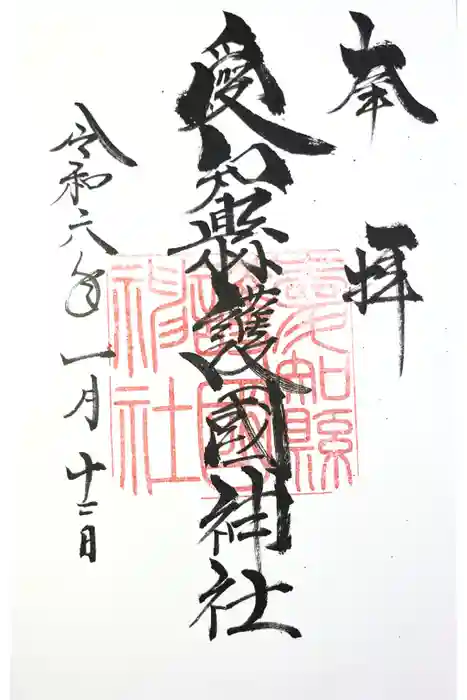 奉拝
愛知縣護國神社
愛知縣
護國
神社
令和六年一月十二日